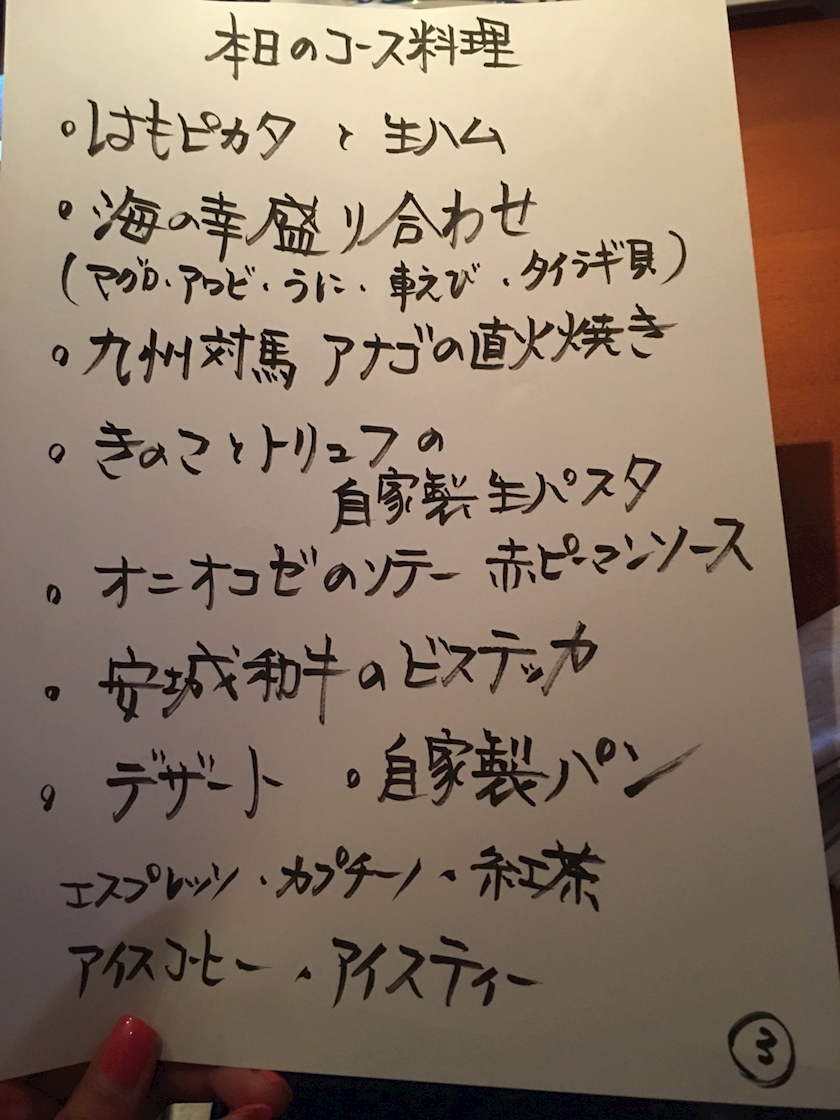 本日のコース料理
・はもピカタ と 生ハム
・海の幸盛り合わせ
(マグロ・アワビ・うに・車えび・タイラギ貝)
・九州対馬 アナゴの直火焼き
・きのことトリュフの
自家製生パスタ
・オニオコゼのソテー 赤ピーマンソース
・安城和牛のビステッカ
・デザート ・自家製パン
エスプレッソ・カプチーノ・紅茶
アイスコーヒー・アイスティー
③